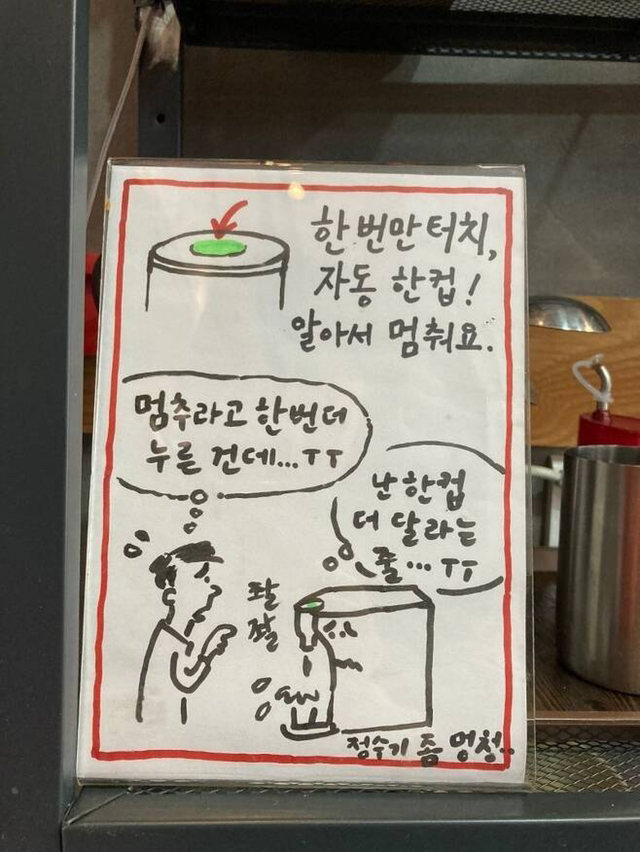 한 번만 터치,
자동 한컵!
알아서 멈춰요.
멈추라고 한번 더
누른 건데...ㅜㅜ
난 한컵
더 달라는
줄...ㅜㅜ
콸
콸
정수기 좀 멍청..